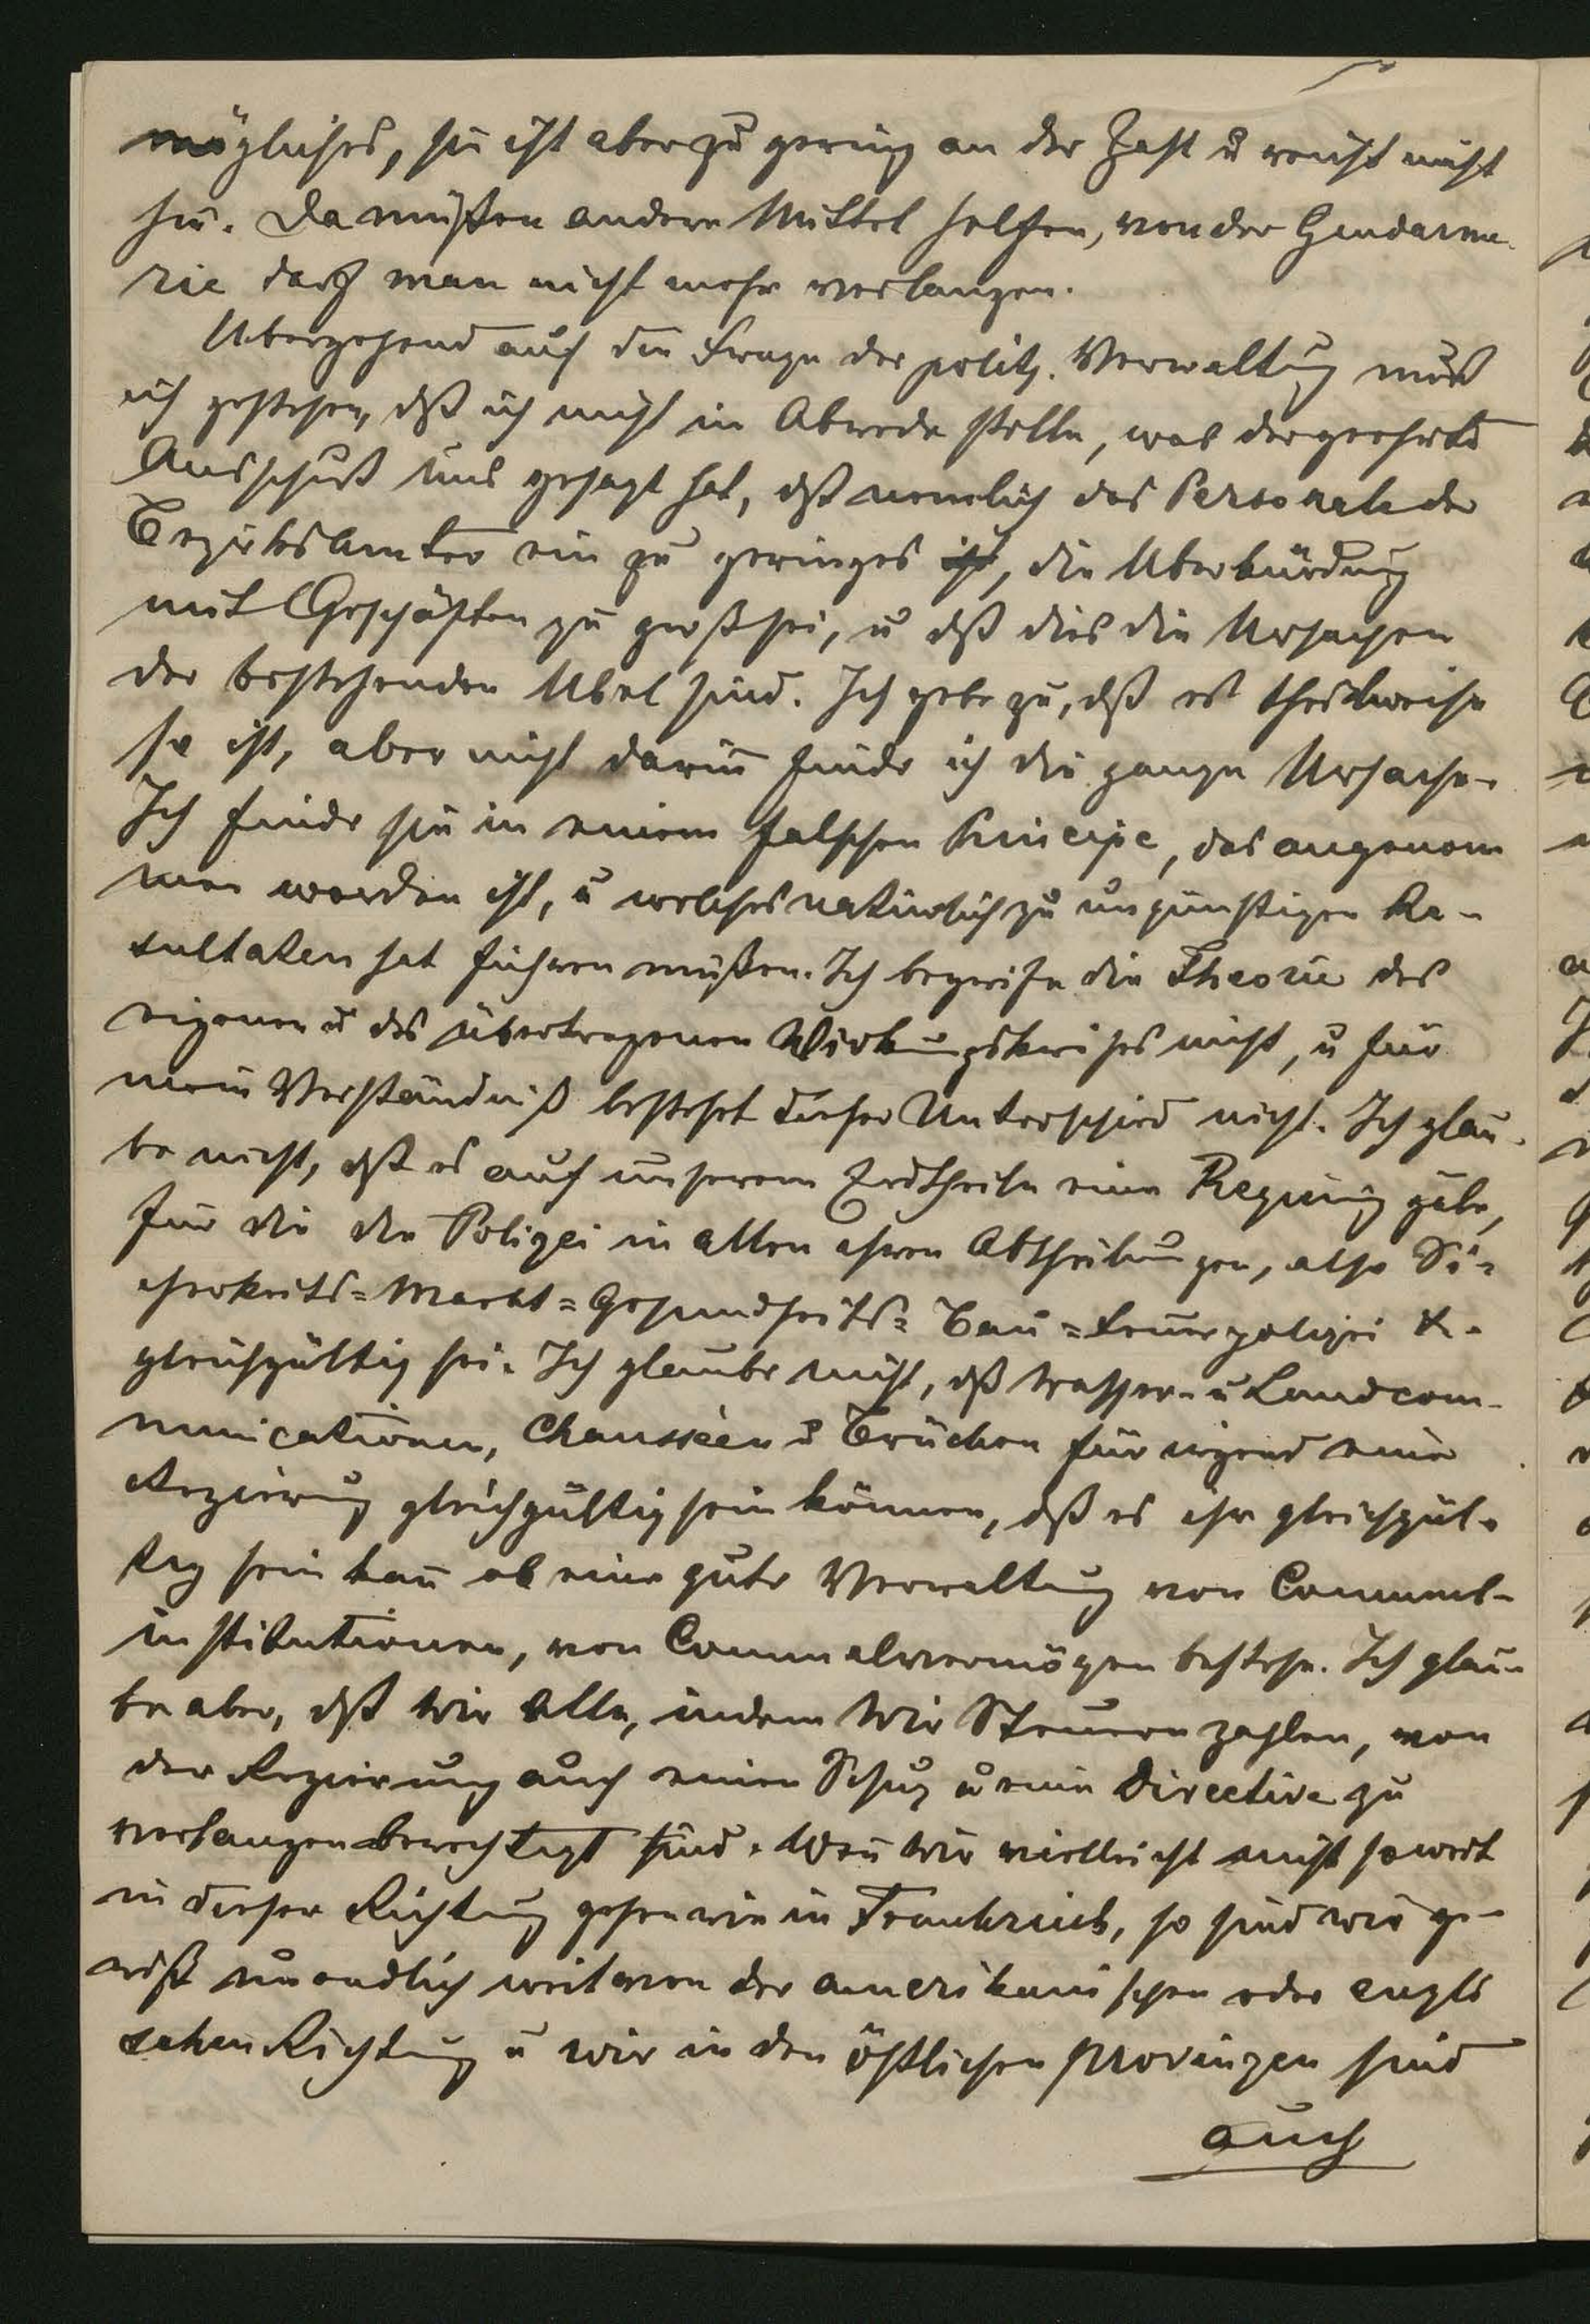 mögliches, sie ist aber zu gering an der Zahl u reicht nicht
hin. Da müßen andere Mittel helfen, von der Gendarme-
rie darf man nicht mehr verlangen.
Ubergehend auf die Frage der polit. Verwaltung muß
ich gestehen, dß ich nicht in Abrede stelle, was der geehrte
Ausschuß uns gesagt hat, dß nemlich das Personale der
Bezirksämter ein zu geringes ist, die Uberbürdung
mit Geschäften zu groß sei, u dß dies die Ursachen
der bestehenden Ubel sind. Ich gebe zu, dß es theilweise
so ist, aber nicht darin finde ich die ganze Ursache.
Ich finde sie in einem falschen Principe, das angenom
men worden ist, u welches natürlich zu ungünstigen Re-
sultaten hat führen müßen. Ich begreife die Theorie des
eigenen u des übertragenen Wirkungskreises nicht, u für
mein Verständniß besteht dieser Unterschied nicht. Ich glau-
be nicht, dß es auf unserem Erdtheile eine Regirung gäbe,
für die die Polizei in allen ihren Abtheilungen, also Si=
cherheits=Markt=Gesundheits=Bau=Feuerpolizei &.
gleichgültig sei. Ich glaube nicht, dß Wasser- u Landcom-
municationen, Chausséen u Brücken für irgend eine
Regierung gleichgültig sein können, dß es ihr gleichgül-
tig sein kan̄ ob eine gute Verwaltung von Communal-
institutionen, von Communalvermögen bestehe. Ich glau-
be aber, dß wir Alle, indem wir Steuern zahlen, von
der Regierung auch einen Schuz u eine Directive zu
verlangen berechtigt sind. Wen̄ wir vielleicht nicht so weit
in dieser Richtung gehen wie in Frankreich, so sind wir ge-
wiß unendlich weit von der amerikanischen oder engli
schen Richtung u wir in den östlichen Provinzen sind
auch